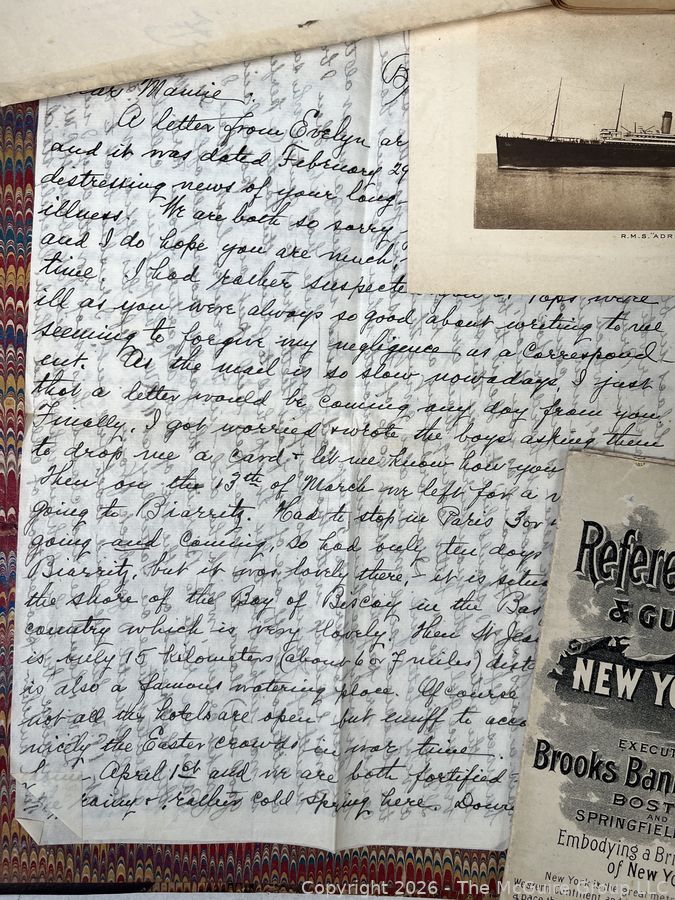 Mamie,
A letter from Evelyn
and it was dated February 29
distressing news of your long
illness. We are both so sorry
and I do hope you are much
time. I had rather suspecte were
ill as you were always so good about writing to me
seeming to forgive my negligence as a correspond-
ent. As the mail is so slow nowadays, I just
that a letter would be coming any day from you
Finally, I got worried & wrote the boys asking them
to drop me a card & let me know how you
Then on the 13th of March we left for a
going to Biarritz. Had to stop in Paris 3 or
going and coming, so had only ten days
Biarritz, but it was lovely there, - it is situa
the shore of the Bay of Biscay in the Bas
country which is very lovely. Then St Jea
is only 15 kilometers (about 6 or 7 miles) dist
is also a famous watering place. Of course
not all the hotels are open but enuff to acco
nicely the Easter crowds in war time
April 1st and we are both fortified
rainy & rather cold spring here.
R.M.S. "ADR
Refere
& GU
NEW YO
EXECUT
Brooks Ban
BOST
AND
SPRINGFIEL
Embodying a Bri
of New Yo
New York is the great met
Western Continent and
Copyright 2026 - The McGuire Group LLC